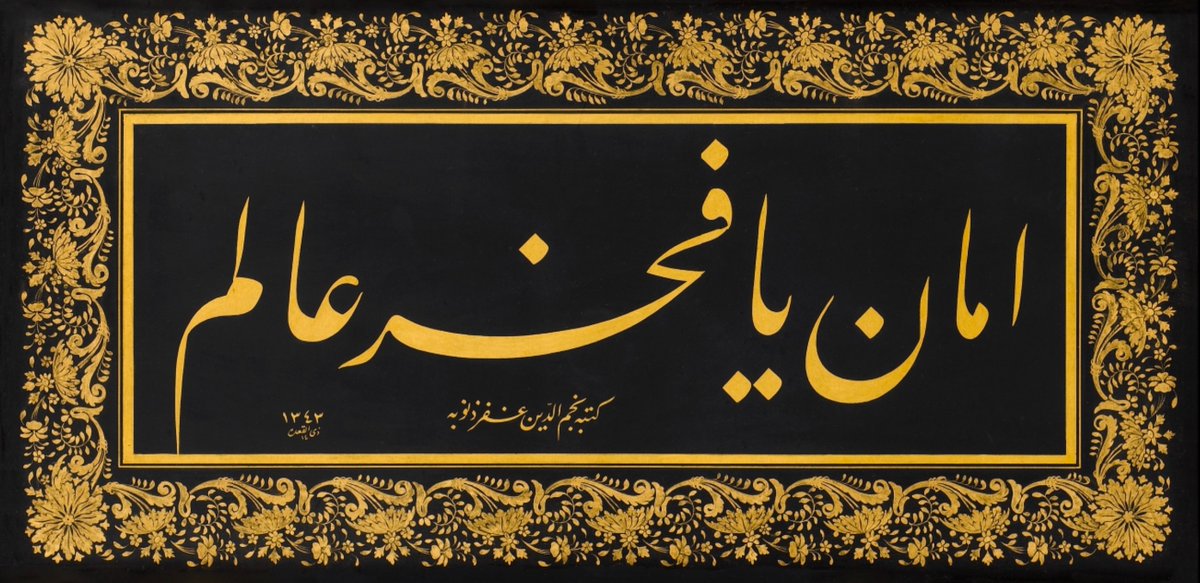 امان يا فخر عالم
كتبه نجم الدين غفر ذنوبه
١٣٤٣
ذي القعدة ١٤